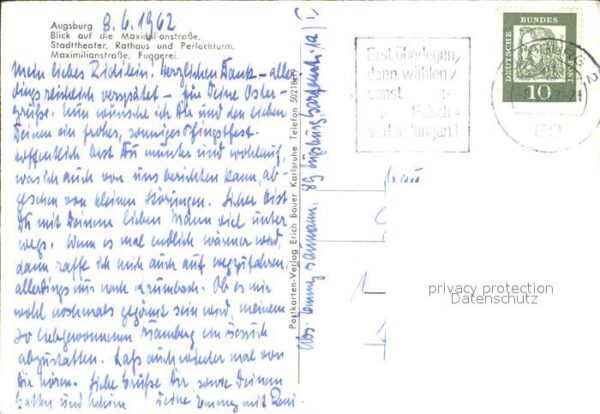 Augsburg 8.6.1962
Blick auf die Maximilianstraße,
Stadttheater, Rathaus und Perlachturm.
Maximilianstraße, Fuggerei.
Mein liebes Zidilein! Herzlichen Dank – aller
dings reichlich verspätet – für Deine Oster-
grüße. Nun wünsche ich Dir und den lieben
Deinen ein frohes, sonniges Pfingstfest.
Hoffentlich bist Du munter und wohlauf,
was ich auch von uns berichten kann, ab-
gesehen von kleinen Störungen. Sicher bist
Du mit Deinem lieben Mann viel unter
wegs. Wenn es mal endlich wärmer wird,
dann raffe ich mich auch auf wegzufahren
allerdings nur nach Krumbach. Ob es mir
wohl nochmals gegönnt sein wird, meinem
so liebgewonnenen Bamberg ein Besuch
abzustatten. Laß auch wieder mal von
Dir hören. Liebe Grüße Dir, sowie Deinem
Gatten und Deine Emmy mit
Postkarten-Verlag Erich Bauer Karlsruhe Telefon
Abs. Emmy 89 Augsburg
Erst überlegen,
dann wählen,
sonst
Falsch-
verbindungen!
DEUTSCHE BUNDESPOST
10
Frau
privacy protection
Datenschutz